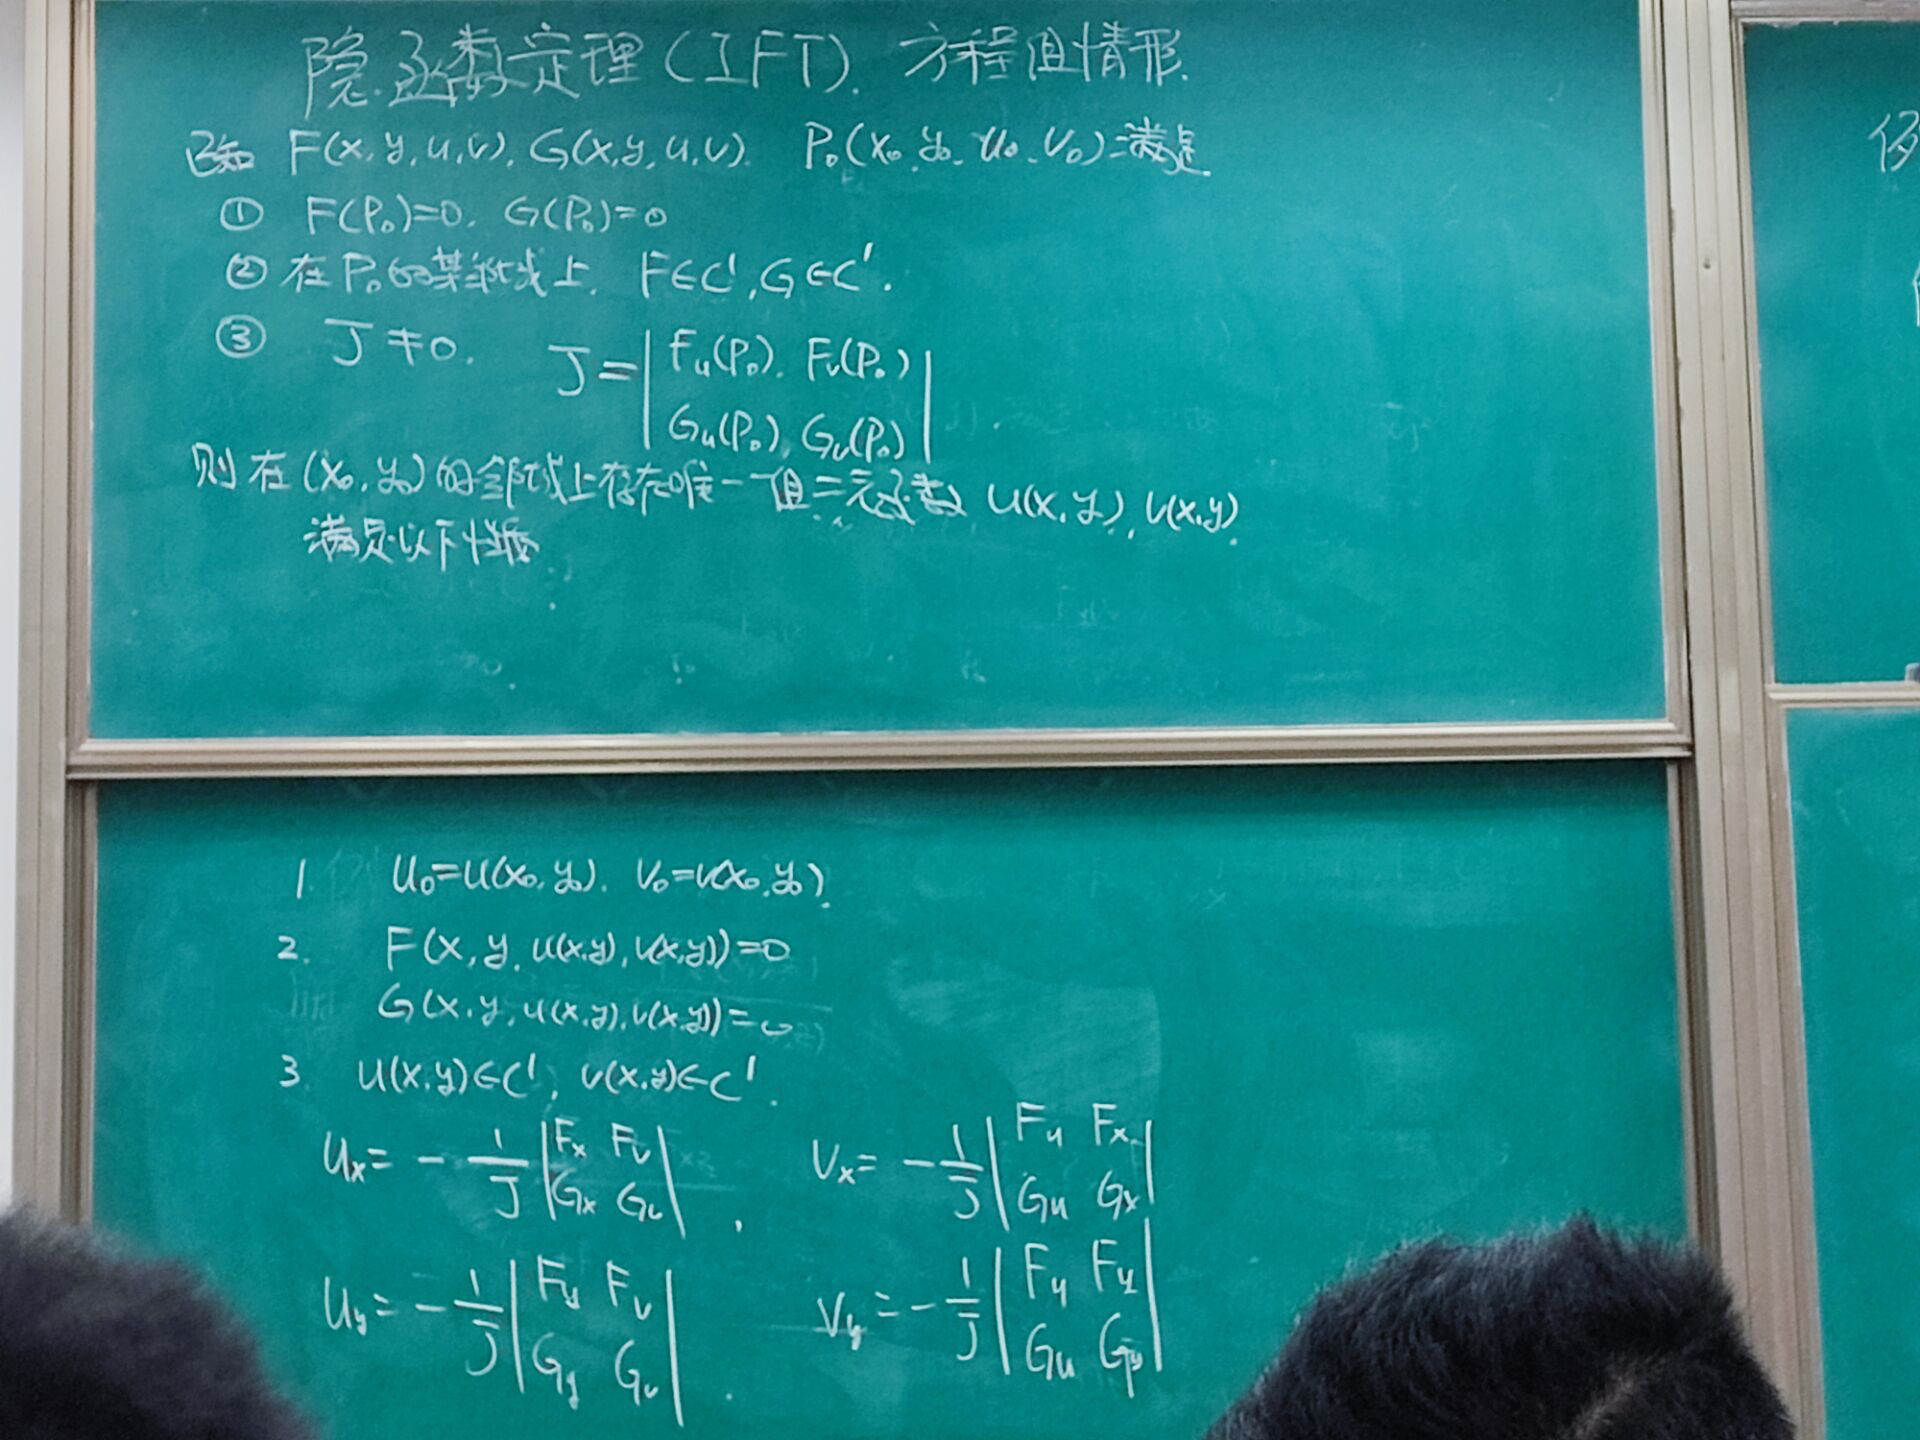 隐函数定理(IFT). 方程组情形.
已知 F(x,y,u,v), G(x,y,u,v). P₀(x₀,y₀,u₀,v₀)满足
① F(P₀)=0, G(P₀)=0
② 在P₀的某邻域上, F∈C¹, G∈C¹.
③ J≠0. J=|Fu(P₀), Fv(P₀)|
|Gu(P₀), Gv(P₀)|
则在(x₀,y₀)的邻域上存在唯一一组二元函数 u(x,y), v(x,y)
满足以下性质
1. u₀=u(x₀,y₀). v₀=v(x₀,y₀).
2. F(x,y,u(x,y),v(x,y))=0
G(x,y,u(x,y),v(x,y))=0
3. u(x,y)∈C¹, v(x,y)∈C¹.
ux= -1/J |Fx Fv|, vx= -1/J |Fu Fx|
|Gx Gv| |Gu Gx|
uy= -1/J |Fy Fv| vy= -1/J |Fu Fy|
|Gy Gv| |Gu Gy|
例